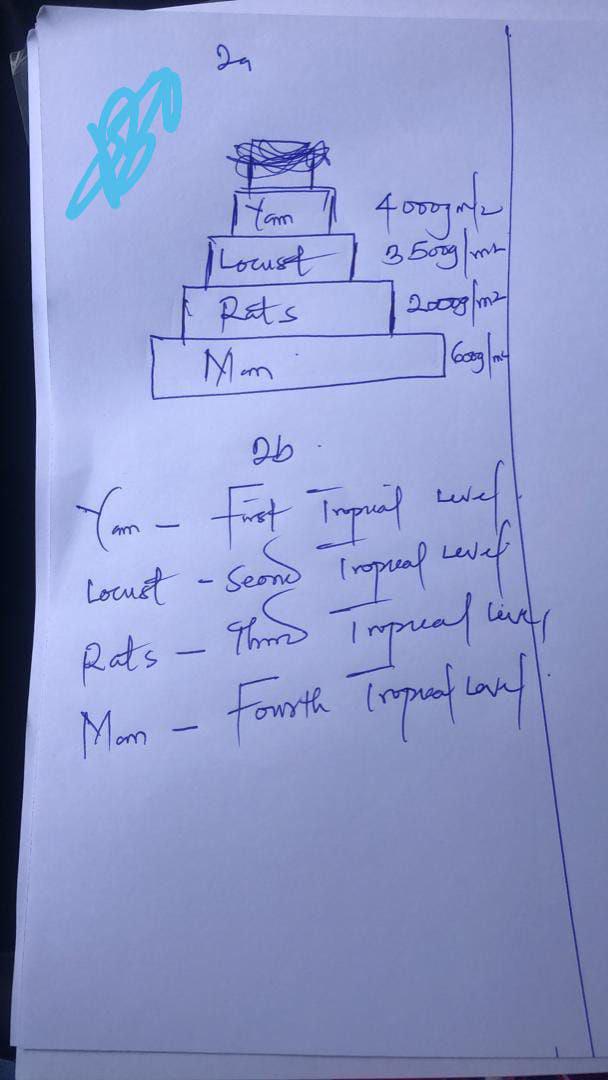 2a
Yam 4000g/m2
Locust 3500g/m2
Rats 2000g/m2
Man 600g/m2
2b
Yam - First Tropical Level
Locust - Second Tropical Level
Rats - Third Tropical Level
Man - Fourth Tropical Level